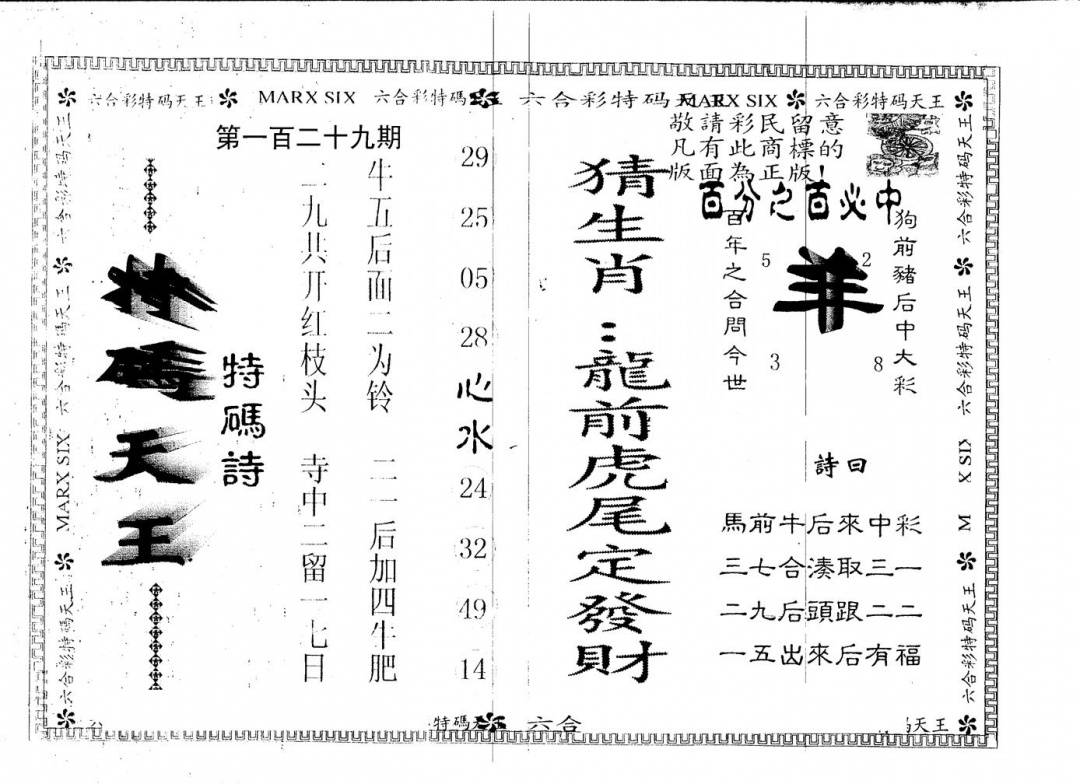 六合彩特码天王
MARX SIX
六合彩特碼
六合彩特码天
MARX SIX
六合彩特码天王
敬請彩民留意
凡有此商標的
版面為正版!
百分之百必中
狗前豬后中大彩
羊
5
2
3
8
百年之合問今世
詩曰
馬前牛后來中彩
三七合湊取三一
二九后頭跟二二
一五出來后有福
猜生肖:龍前虎尾定發財
29
25
05
28
心水
24
32
49
14
第一百二十九期
牛五后面二为铃 二一后加四牛肥
二九共开红枝头 寺中二留一七日
特碼詩
特碼天王
六合彩特码天王
六合彩特码天王
MARX SIX
六合彩特码天王
六合彩特码天王
六合彩特码天王
X SIX
M
六合彩特码天王
特碼天
六合
天王